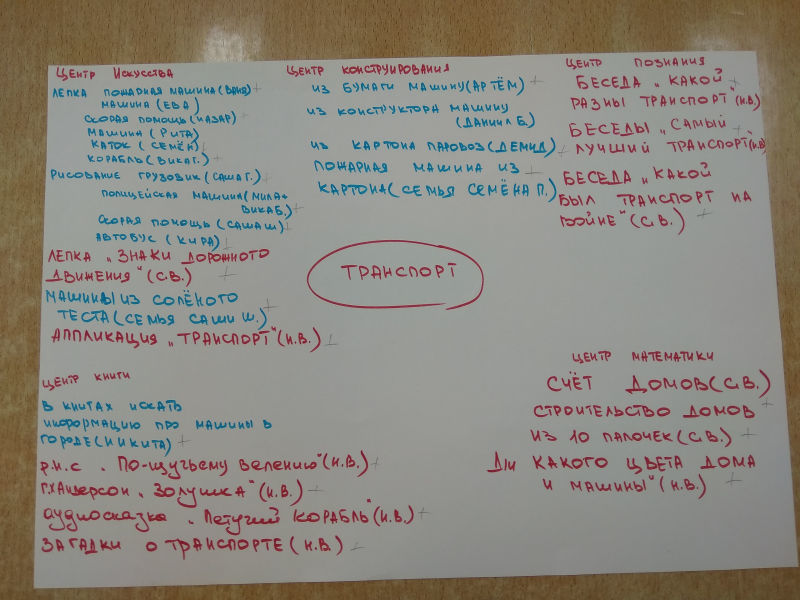 ЦЕНТР ИСКУССТВА
ЛЕПКА ПОЖАРНАЯ МАШИНА (ВАНЯ)
МАШИНА (ЕВА)
СКОРАЯ ПОМОЩЬ (НАЗАР)
МАШИНА (РИТА)
КАТОК (СЕМЁН)
КОРАБЛЬ (ВИКА Г.)
РИСОВАНИЕ ГРУЗОВИК (САША Г.)
ПОЛИЦЕЙСКАЯ МАШИНА (МИЛА+
ВИКА Б.)
СКОРАЯ ПОМОЩЬ (САША Ш)
АВТОБУС (КИРА)
ЛЕПКА „ЗНАКИ ДОРОЖНОГО
ДВИЖЕНИЯ" (С.В.)
МАШИНЫ ИЗ СОЛЁНОГО
ТЕСТА (СЕМЬЯ САШИ Ш.)
АППЛИКАЦИЯ „ТРАНСПОРТ" (Н.В.)
ЦЕНТР КОНСТРУИРОВАНИЯ
ИЗ БУМАГИ МАШИНУ (АРТЁМ)
ИЗ КОНСТРУКТОРА МАШИНУ
(ДАНИИЛ Б.)
ИЗ КАРТОНА ПАРОВОЗ (ДЕМИД)
ПОЖАРНАЯ МАШИНА ИЗ
КАРТОНА (СЕМЬЯ СЕМЁНА П.)
ЦЕНТР ПОЗНАНИЯ
БЕСЕДА „КАКОЙ
РАЗНЫ ТРАНСПОРТ" (Н.В.)
БЕСЕДЫ „САМЫЙ
ЛУЧШИЙ ТРАНСПОРТ" (Н.В)
БЕСЕДА „КАКОЙ
БЫЛ ТРАНСПОРТ НА
ВОЙНЕ" (С.В.)
ТРАНСПОРТ
ЦЕНТР КНИГИ
В КНИГАХ ИСКАТЬ
ИНФОРМАЦИЮ ПРО МАШИНЫ В
ГОРОДЕ (НИКИТА)
р.н.с. „По-щучьему велению" (Н.В.)
Г.Х Андерсон „Золушка" (Н.В.)
аудиосказка „Летучий КОРАБЛЬ" (Н.В.)
ЗАГАДКИ О ТРАНСПОРТЕ (Н.В.)
ЦЕНТР МАТЕМАТИКИ
СЧЁТ ДОМОВ (С.В.)
СТРОИТЕЛЬСТВО ДОМОВ
ИЗ 10 ПАЛОЧЕК (С.В.)
Д/И КАКОГО ЦВЕТА ДОМА
И МАШИНЫ" (Н.В.)